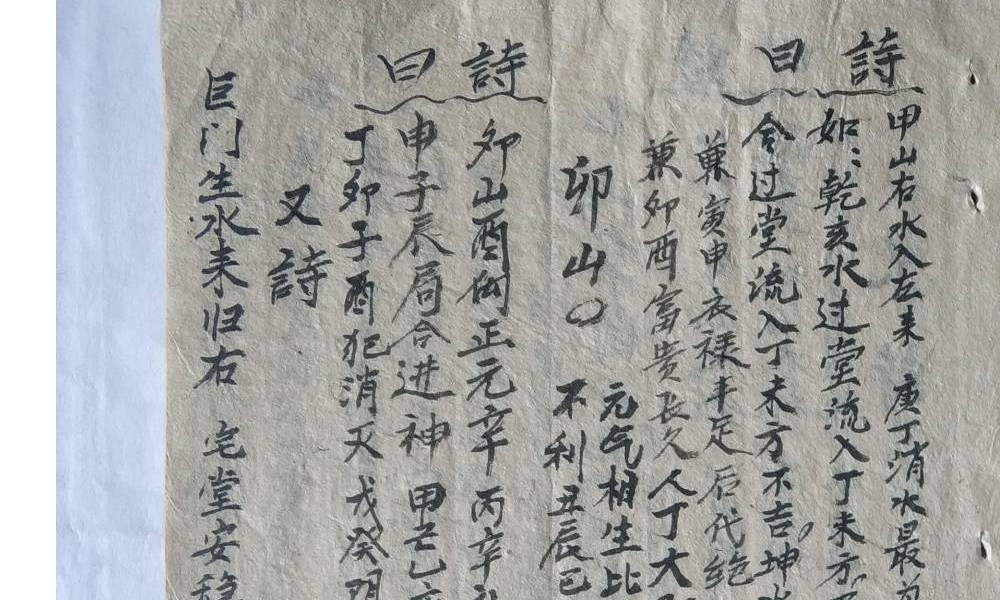 詩曰
甲山右水入左来 庚丁消水最为
如:乾亥水过堂流入丁未方不
令过堂流入丁未方不吉。坤水
兼寅申衣禄丰足后代绝
兼卯酉富贵长久人丁大
卯山〇
元气相生比
不利丑辰巳
詩曰
卯山酉向正元辛 丙辛
申子辰局合进神 甲芒乙
丁卯子酉犯消灭 戊癸明
又詩
巨门生水来归右 宅堂安稳